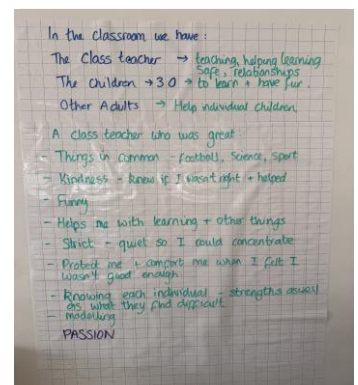 In the classroom we have:
The Class teacher → teaching, helping learning
safe, relationships
The children → 30 → to learn + have fun.
Other Adults → Help individual children
A class teacher who was great:
- Things in common - football, Science, Sport
- Kindness - knew if I wasn't right + helped
- Funny
- Helps me with learning + other things
- Strict - quiet so I could concentrate
- Protect me + comfort me when I felt I
wasn't good enough
- Knowing each individual - strengths aswell
as what they find difficult
- modelling
PASSION